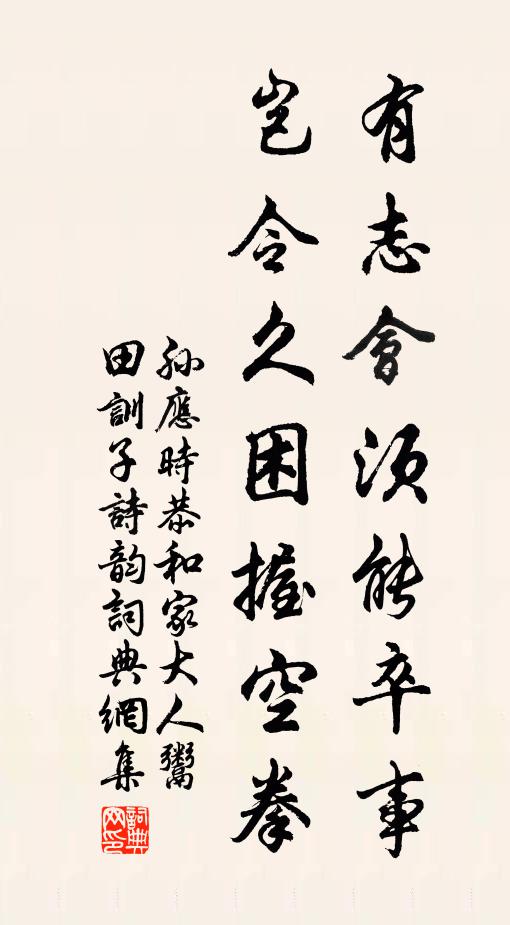 有志會須能卒事
豈令久困握空拳
孫應時恭和家大人鬻
田訓子詩韵詞典網集
詞典网印